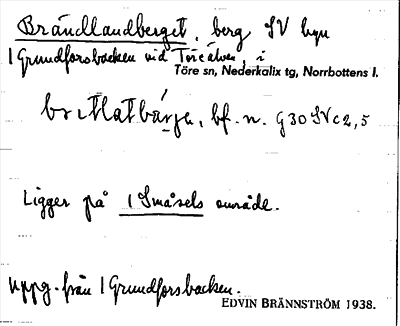 Brändlandberget, berg SV byn
1 Grundforsbacken vid Töreälven, i
Töre sn, Nederkalix tg, Norrbottens l.
bf. n. G30SVc2,5
Ligger på 1 Småsels område.
Uppg. från 1 Grundforsbacken.
EDVIN BRÄNNSTRÖM 1938.